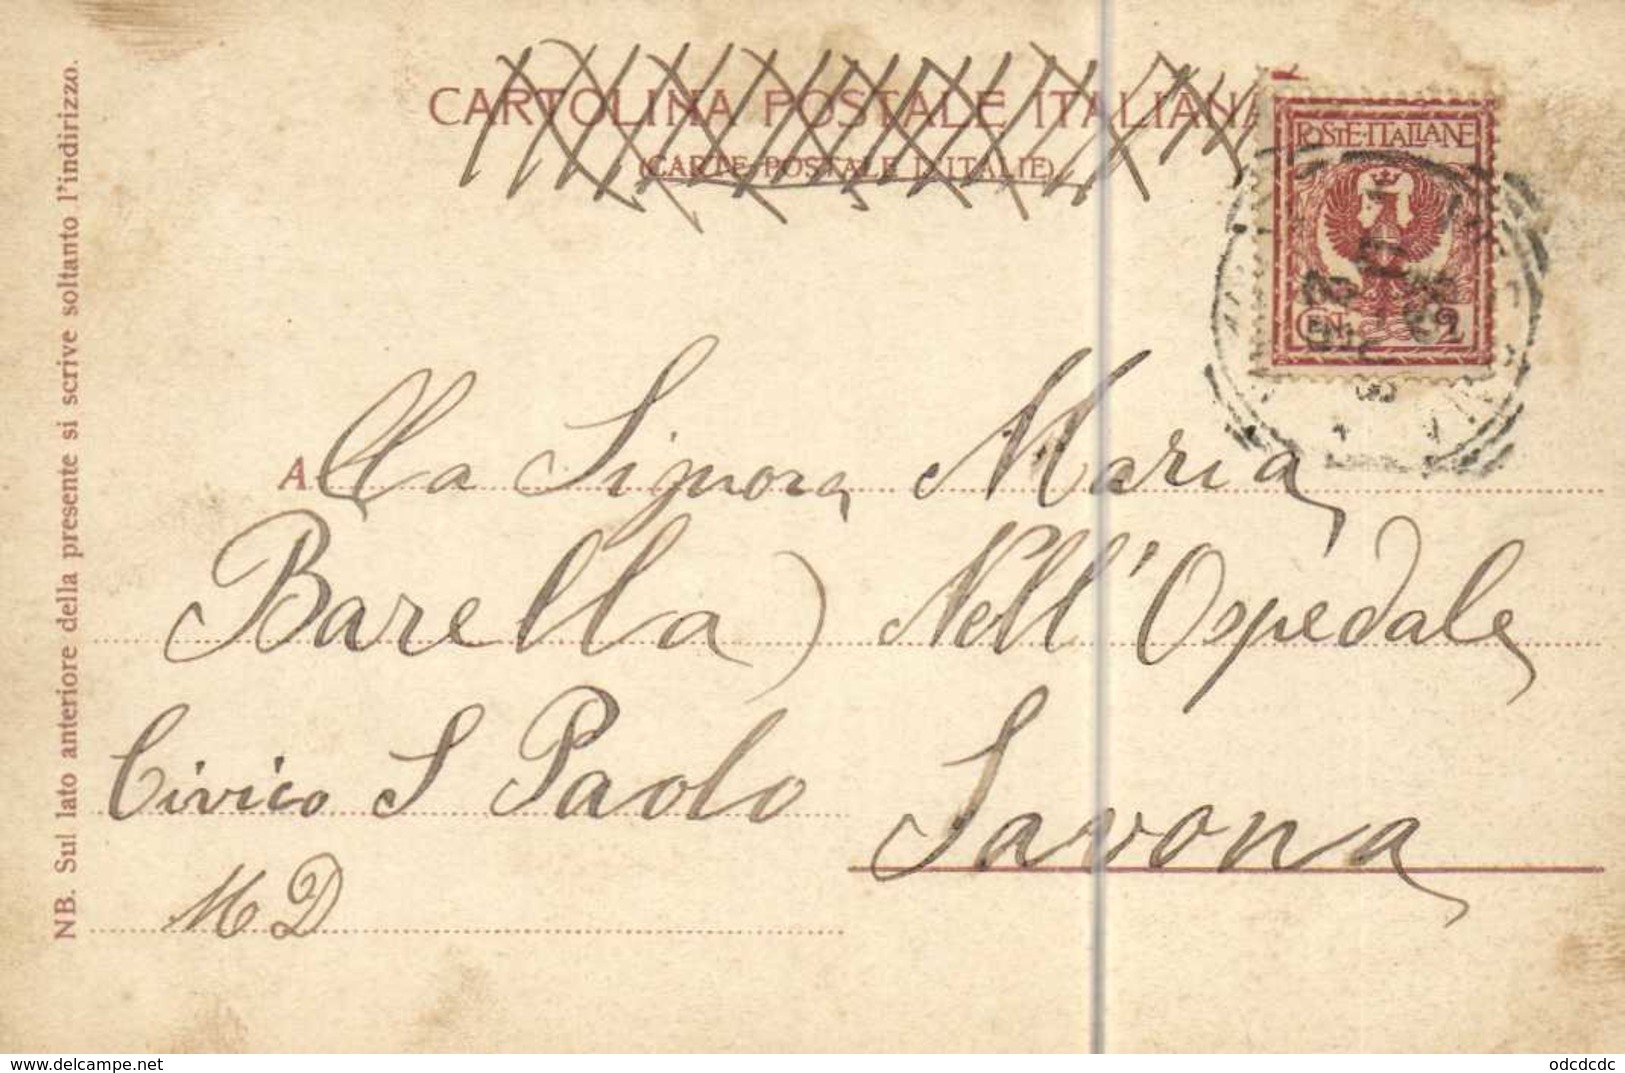 CARTOLINA POSTALE ITALIANA
(CARTE POSTALE D'ITALIE)
POSTE·ITALIANE
CEN. 2
Alla Signora Maria
Barella Nell'Ospedale
Civico S Paolo
Savona
M D
NB. Sul lato anteriore della presente si scrive soltanto l'indirizzo.
delcampe.net
odcdcdc